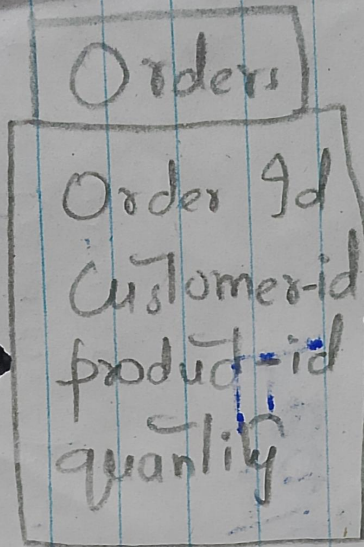 Orders
Order Id
Customer-id
product-id
quantity